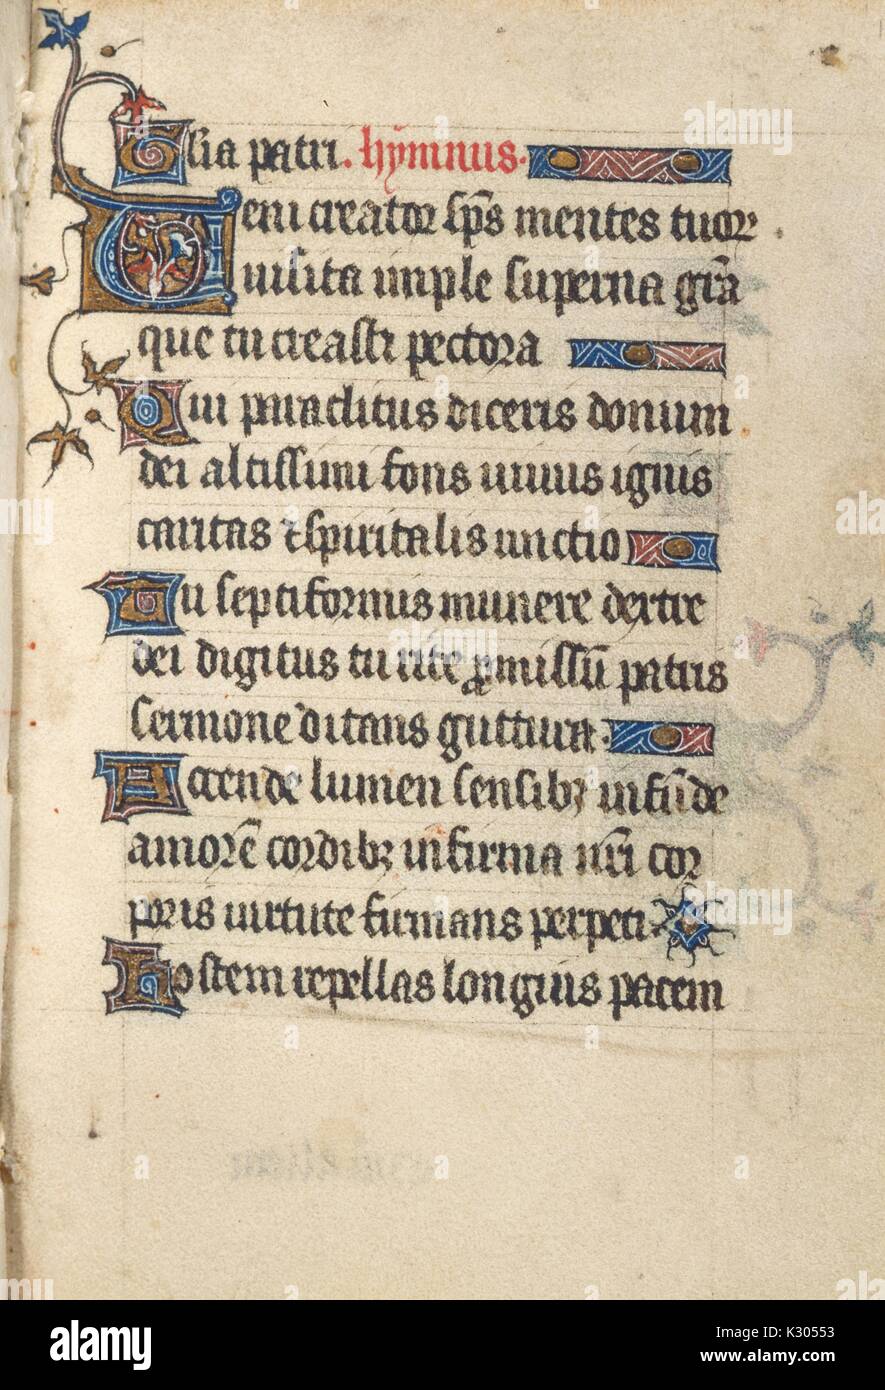 Glia patri. hymnus.
Veni creator sp̄s mentes tuor
uisita imple superna gr̄a
que tu creasti pectora
Qui paraclitus diceris donum
dei altissimi fons uiuus ignis
caritas ⁊ spiritalis unctio
Tu septiformis munere dextre
dei digitus tu rite ꝓmissū patris
sermone ditans guttura.
Accende lumen sensibꝫ infūde
amorē cordibꝫ infirma nr̄i cor
poris uirtute firmans perpeti
Hostem repellas longius pacem
alamy
Image ID: K30553
www.alamy.com